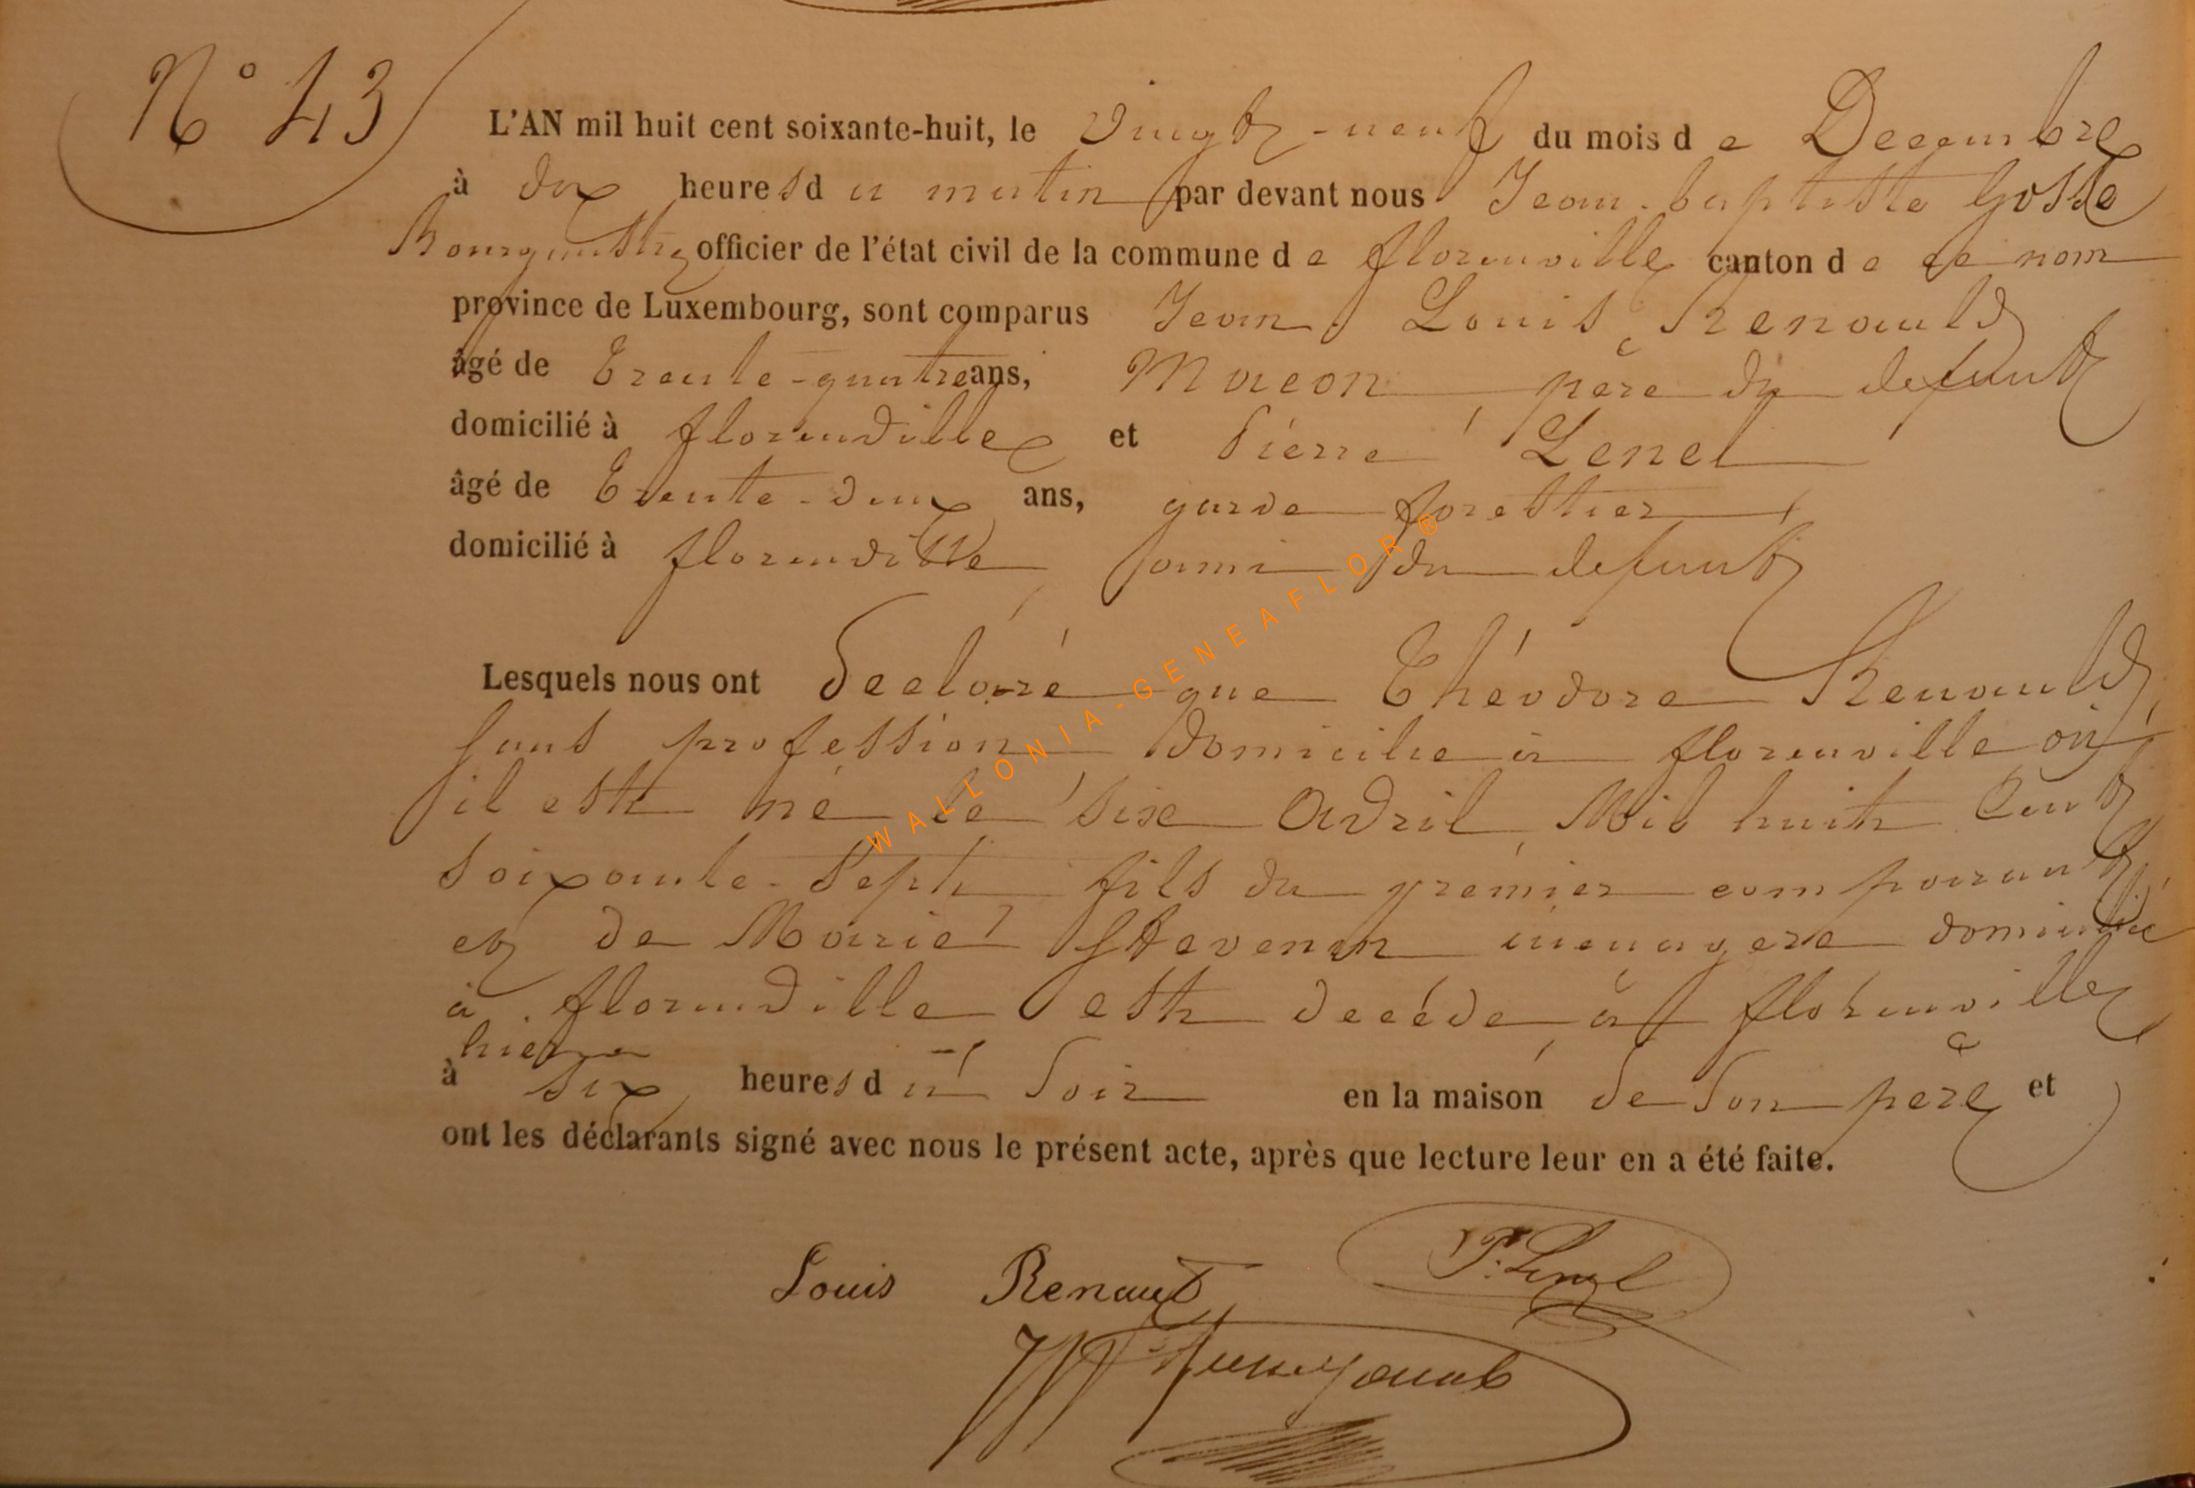 N° 43
L'AN mil huit cent soixante-huit, le Vingt-neuf du mois de Decembre
à dix heures du matin par devant nous Jean-baptiste Gosse
Bourgmestre officier de l'état civil de la commune de florenville canton de ce nom
province de Luxembourg, sont comparus Jean Louis Renauld
âgé de Trente-quatre ans, Macon père du defunt
domicilié à florenville et Pierre Lenel
âgé de Trente-deux ans, garde forestier
domicilié à florenville ami du defunt
Lesquels nous ont declaré que Théodore Renauld
sans profession domicilie à florenville où
il est né le six Avril Mil huit Cent
soixante-Sept fils du premier comparant
et de Marie Stevenin menagere domicilié
à florenville est decédé à florenville
hier
à six heures du soir en la maison de son père et
ont les déclarants signé avec nous le présent acte, après que lecture leur en a été faite.
Louis Renaud P. Lenel
WALLONIA-GENEAFLOR®